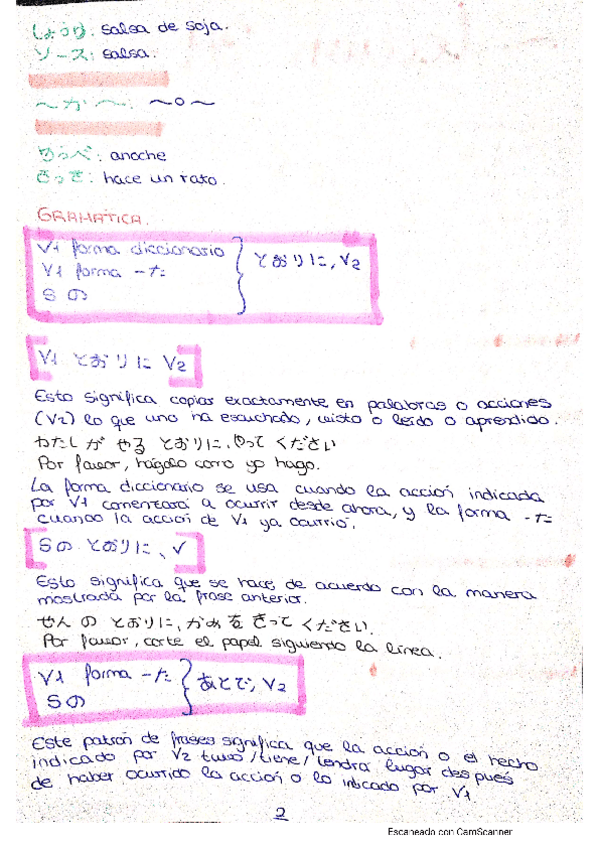 しょうゆ: salsa de soja.
ソース: salsa.
～か～: ～o～
ゆうべ: anoche
さっき: hace un rato.
GRAMATICA.
V1 forma diccionario
V1 forma -た
S の
とおりに, V2
V1 とおりに V2
Esto significa copiar exactamente en palabras o acciones
(V2) lo que uno ha escuchado, visto o leído o aprendido.
わたしが やる とおりに, やって ください
Por favor, hágalo como yo hago.
La forma diccionario se usa cuando la acción indicada
por V1 comenzará a ocurrir desde ahora, y la forma -た
cuando la acción de V1 ya ocurrió.
Sの とおりに、V
Esto significa que se hace de acuerdo con la manera
mostrada por la frase anterior.
せんの とおりに, かみを きって ください.
Por favor, corte el papel siguiendo la línea.
V1 forma -た
Sの
あとで, V2
Este patrón de frases significa que la acción o el hecho
indicado por V2 tuvo/tiene/tendrá lugar después
de haber ocurrido la acción o lo indicado por V1.
2
Escaneado con CamScanner